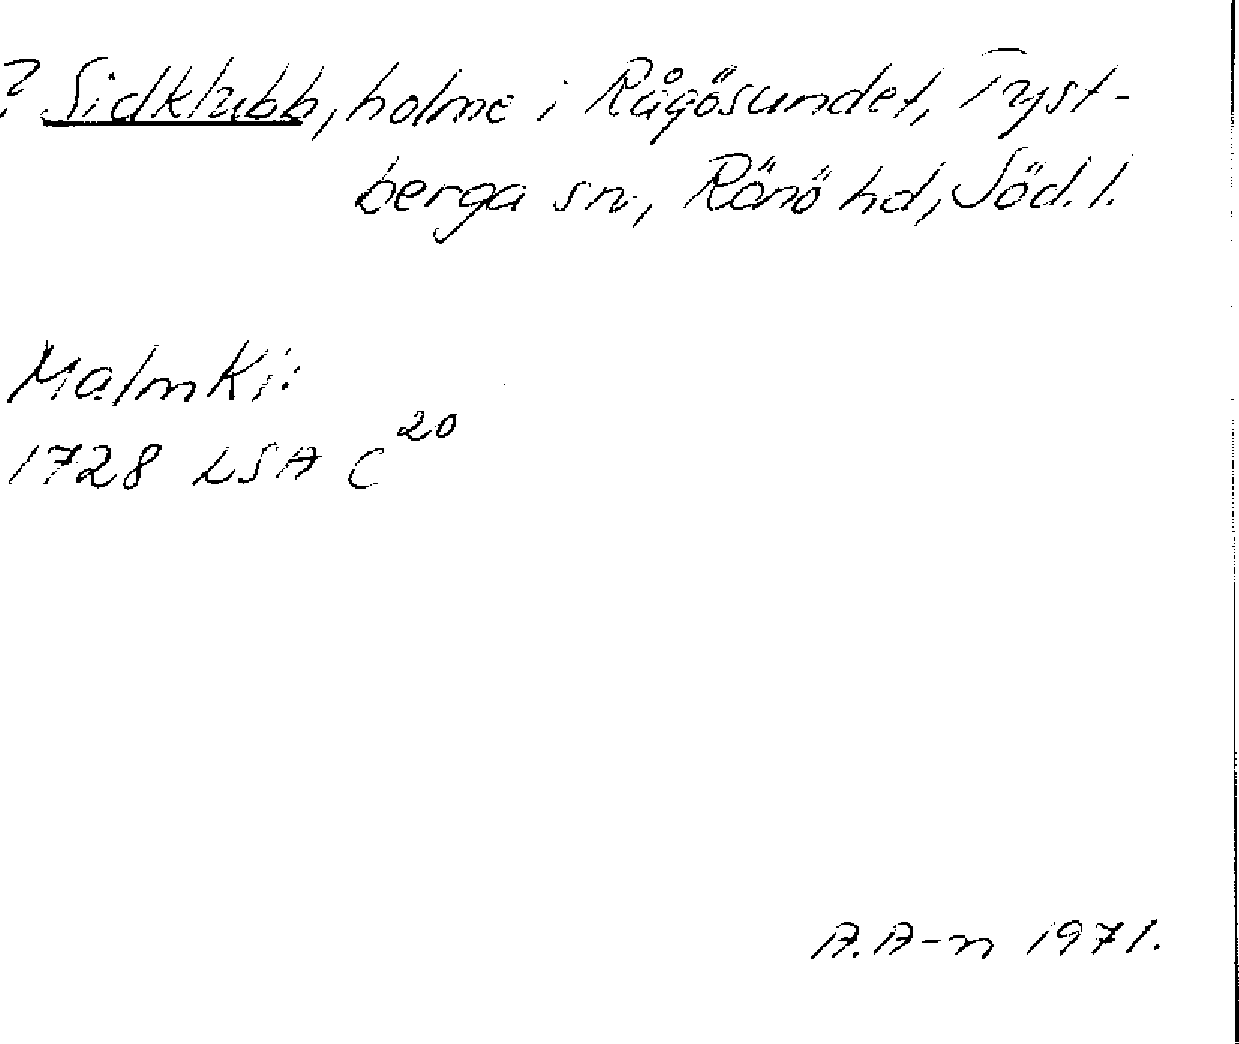 ? Sidklubb, holme i Rågösundet, Tyst-
berga sn, Rönö hd, Söd. l.
Malmki:
1728 LSA C 20
A. A-n 1971.